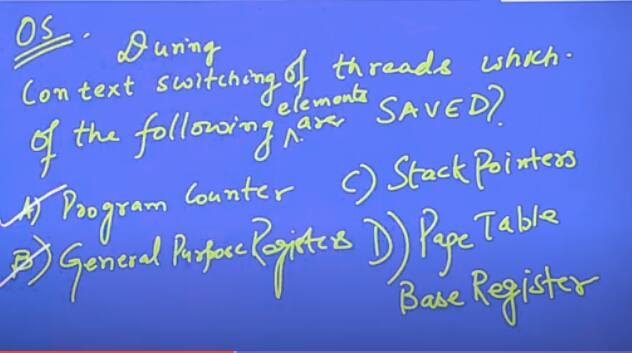 OS. During
Context switching of threads which
of the following elements are SAVED?
A) Program Counter
B) General Purpose Registers
C) Stack Pointers
D) Page Table
Base Register